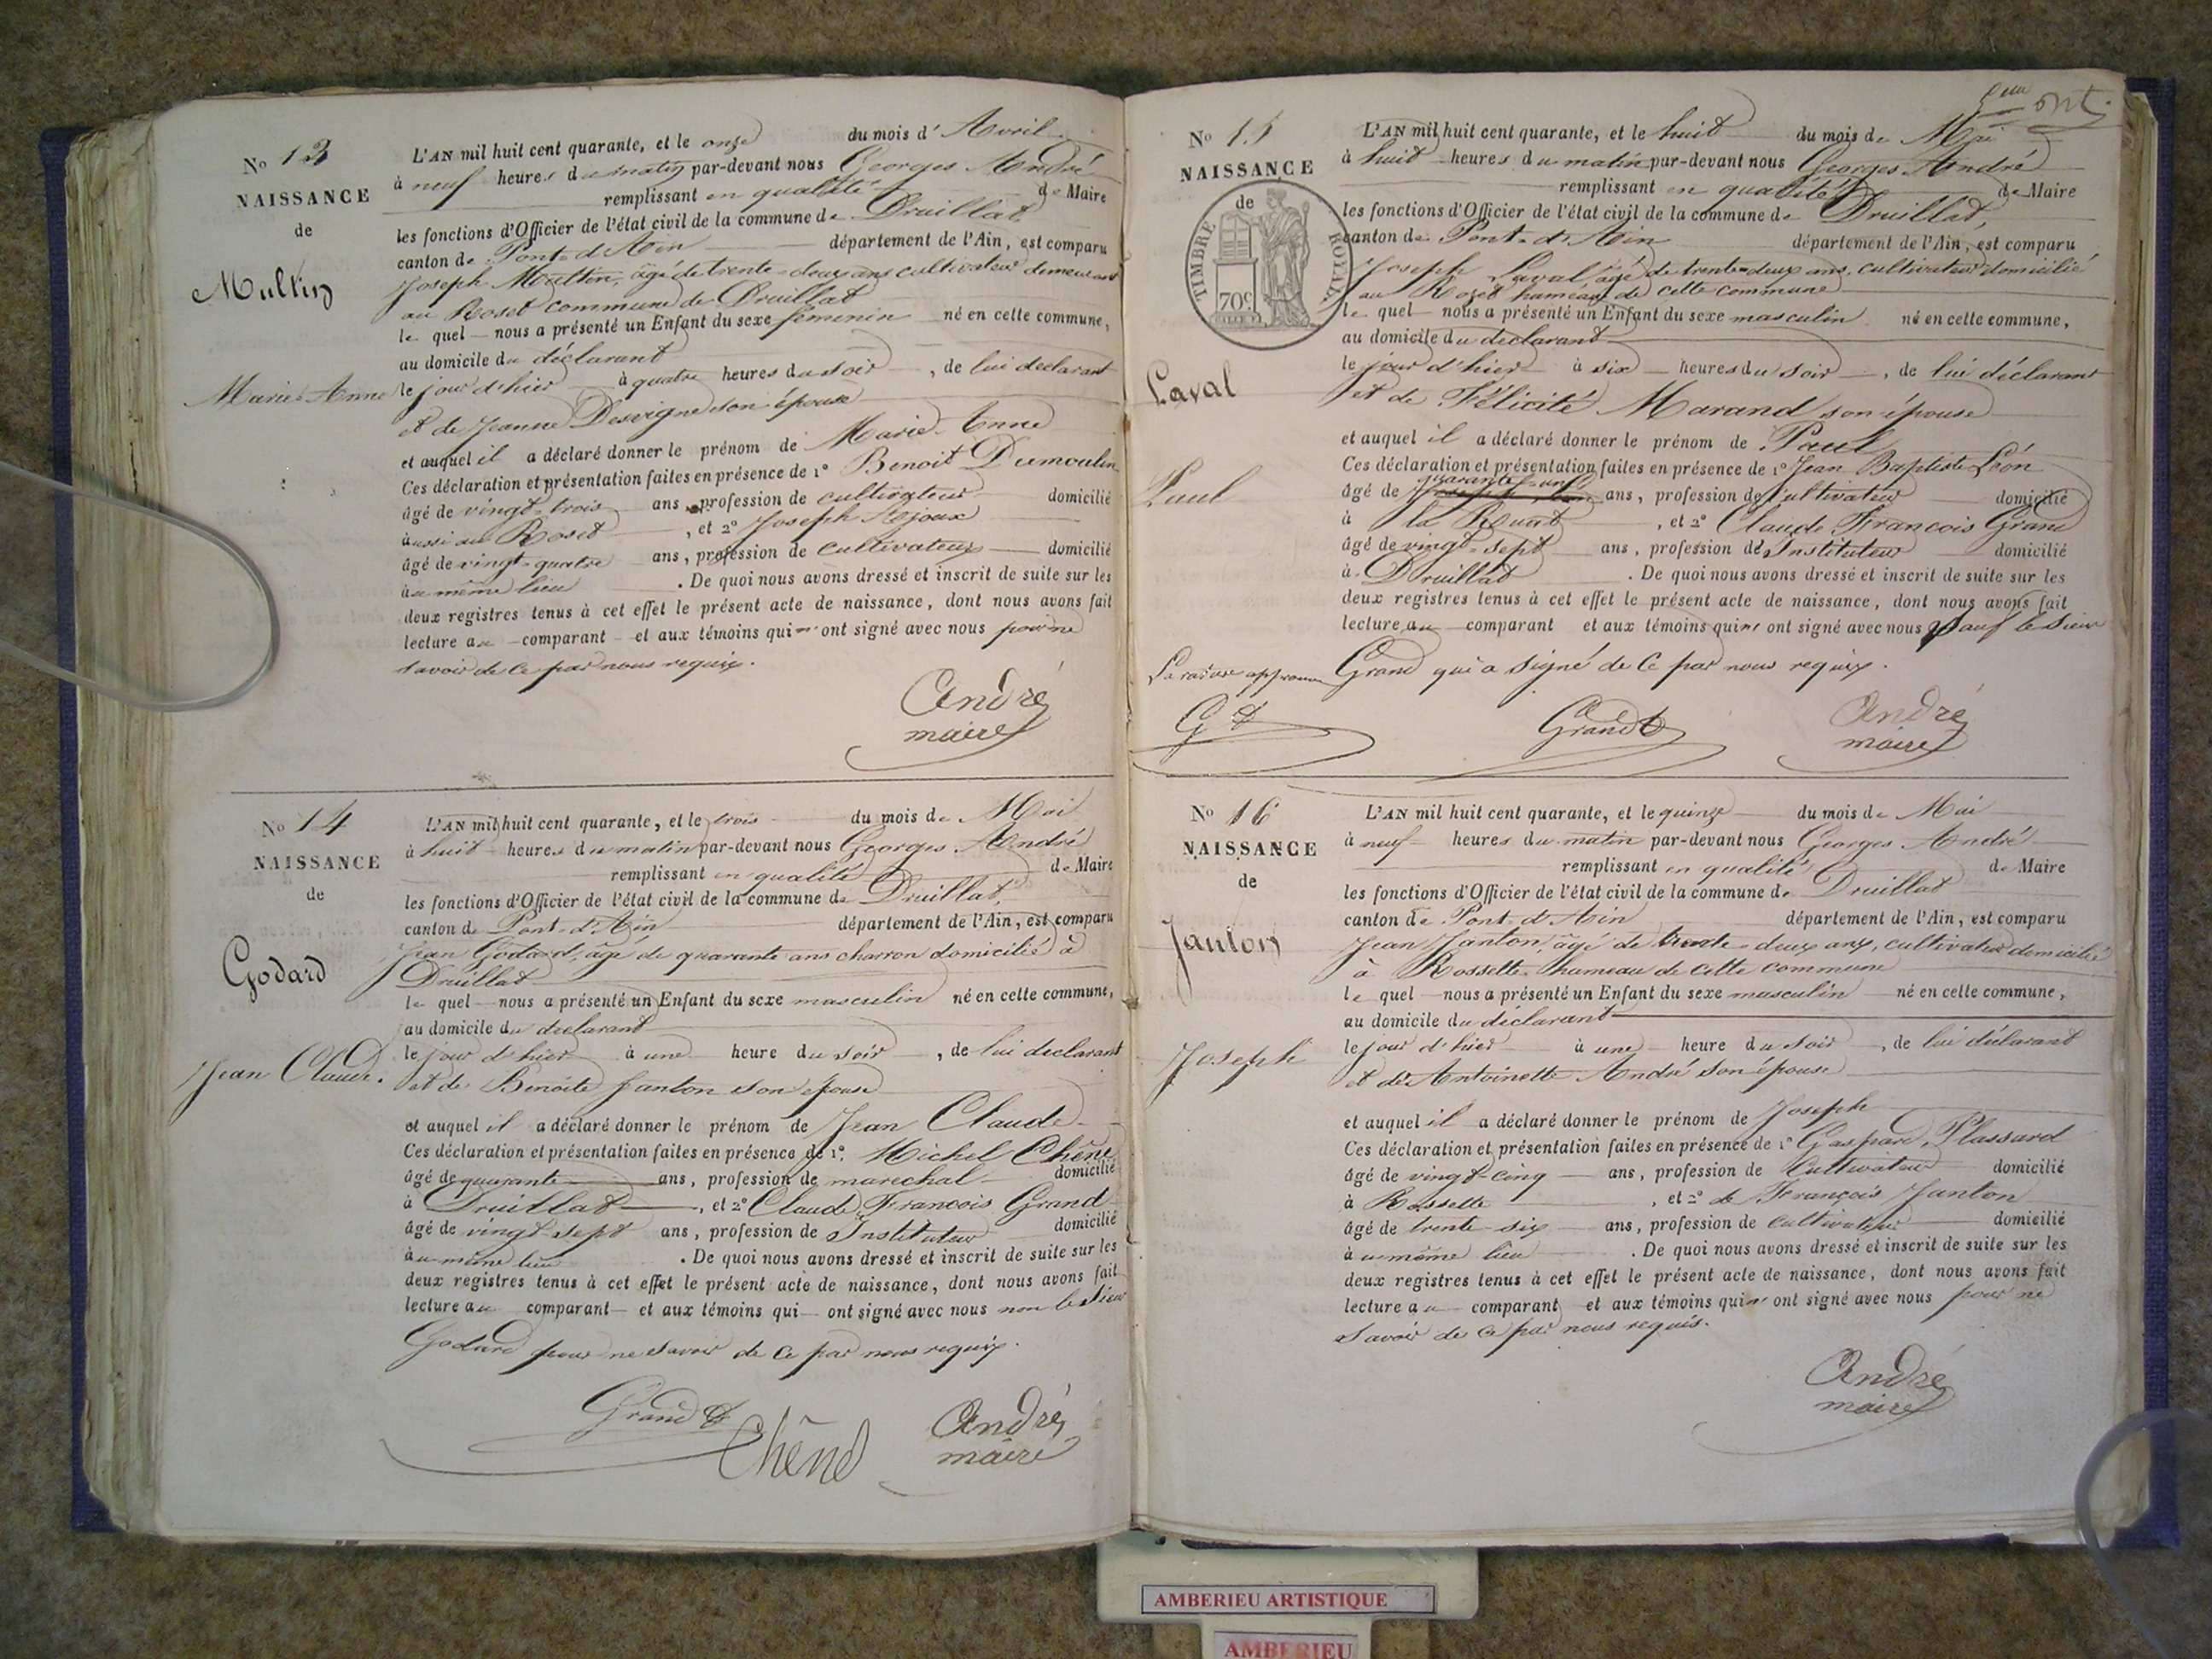 No 13
NAISSANCE
de
Multin
Marie-Anne
L'AN mil huit cent quarante, et le onze du mois d'Avril
à neuf heures du matin par-devant nous Georges André
remplissant en qualité de Maire
les fonctions d'Officier de l'état civil de la commune de Druillat,
canton de Pont-d'Ain département de l'Ain, est comparu
Joseph Multin, âgé de trente-deux ans cultivateur demeurant
au Roset commune de Druillat
le quel nous a présenté un Enfant du sexe féminin né en cette commune,
au domicile du déclarant
le jour d'hier à quatre heures du soir, de lui déclarant
et de Jeanne Desvigne son épouse
et auquel il a déclaré donner le prénom de Marie-Anne
Ces déclaration et présentation faites en présence de 1° Benoit Dumoulin
âgé de vingt-trois ans, profession de cultivateur domicilié
aussi au Roset, et 2° Joseph Ajoux
âgé de vingt-quatre ans, profession de cultivateur domicilié
au même lieu. De quoi nous avons dressé et inscrit de suite sur les
deux registres tenus à cet effet le présent acte de naissance, dont nous avons fait
lecture au comparant et aux témoins qui n'ont signé avec nous pour ne
savoir de ce par nous requis.
André
maire
No 14
NAISSANCE
de
Godard
Jean Claude.
L'AN mil huit cent quarante, et le trois du mois de Mai
à huit heures du matin par-devant nous Georges André
remplissant en qualité de Maire
les fonctions d'Officier de l'état civil de la commune de Druillat,
canton de Pont-d'Ain département de l'Ain, est comparu
Jean Godard, âgé de quarante ans charron domicilié à
Druillat
le quel nous a présenté un Enfant du sexe masculin né en cette commune,
au domicile du declarant
le jour d'hier à une heure du soir, de lui declarant
et de Benoite Janton son épouse
et auquel il a déclaré donner le prénom de Jean Claude
Ces déclaration et présentation faites en présence de 1°. Michel Chêne
âgé de quarante ans, profession de marechal domicilié
à Druillat, et 2° Claude François Grand
âgé de vingt sept ans, profession de Instituteur domicilié
au même lieu. De quoi nous avons dressé et inscrit de suite sur les
deux registres tenus à cet effet le présent acte de naissance, dont nous avons fait
lecture au comparant et aux témoins qui ont signé avec nous non le sieur
Godard pour ne savoir de ce par nous requis.
Grand
Chêne
André
maire
No 15
NAISSANCE
de
TIMBRE ROYAL
70c
Laval
Paul
L'AN mil huit cent quarante, et le huit du mois de Mai
à huit heures du matin par-devant nous Georges André
remplissant en qualité de Maire
les fonctions d'Officier de l'état civil de la commune de Druillat,
canton de Pont-d'Ain département de l'Ain, est comparu
Joseph Laval âgé de trente-deux ans, cultivateur domicilié
au Rozet hameau de cette commune
le quel nous a présenté un Enfant du sexe masculin né en cette commune,
au domicile du declarant
le jour d'hier à six heures du soir, de lui déclarant
et de Félicité Marand son épouse
et auquel il a déclaré donner le prénom de Paul
Ces déclaration et présentation faites en présence de 1° Jean Baptiste Léon
âgé de quarante-un ans, profession de cultivateur domicilié
à la, et 2° Claude François Grand
âgé de vingt-sept ans, profession de Instituteur domicilié
à Druillat. De quoi nous avons dressé et inscrit de suite sur les
deux registres tenus à cet effet le présent acte de naissance, dont nous avons fait
lecture au comparant et aux témoins qui n'ont signé avec nous sauf le sieur
Grand qui a signé de ce par nous requis.
La rature approuvée
Gd
Grand
André
maire
No 16
NAISSANCE
de
Janton
Joseph
L'AN mil huit cent quarante, et le quinze du mois de Mai
à neuf heures du matin par-devant nous Georges André
remplissant en qualité de Maire
les fonctions d'Officier de l'état civil de la commune de Druillat
canton de Pont-d'Ain département de l'Ain, est comparu
Jean Janton, âgé de trente-deux ans, cultivateur domicilié
à Rossette hameau de cette commune
le quel nous a présenté un Enfant du sexe masculin né en cette commune,
au domicile du déclarant
le jour d'hier à une heure du soir, de lui déclarant
et de Antoinette André son épouse
et auquel il a déclaré donner le prénom de Joseph
Ces déclaration et présentation faites en présence de 1° Gaspard Plassard
âgé de vingt-cinq ans, profession de Cultivateur domicilié
à Rossette, et 2° de François Janton
âgé de trente-six ans, profession de cultivateur domicilié
à u même lieu. De quoi nous avons dressé et inscrit de suite sur les
deux registres tenus à cet effet le présent acte de naissance, dont nous avons fait
lecture au comparant et aux témoins qui n'ont signé avec nous pour ne
savoir de ce par nous requis.
André
maire
AMBERIEU ARTISTIQUE
AMBERIEU